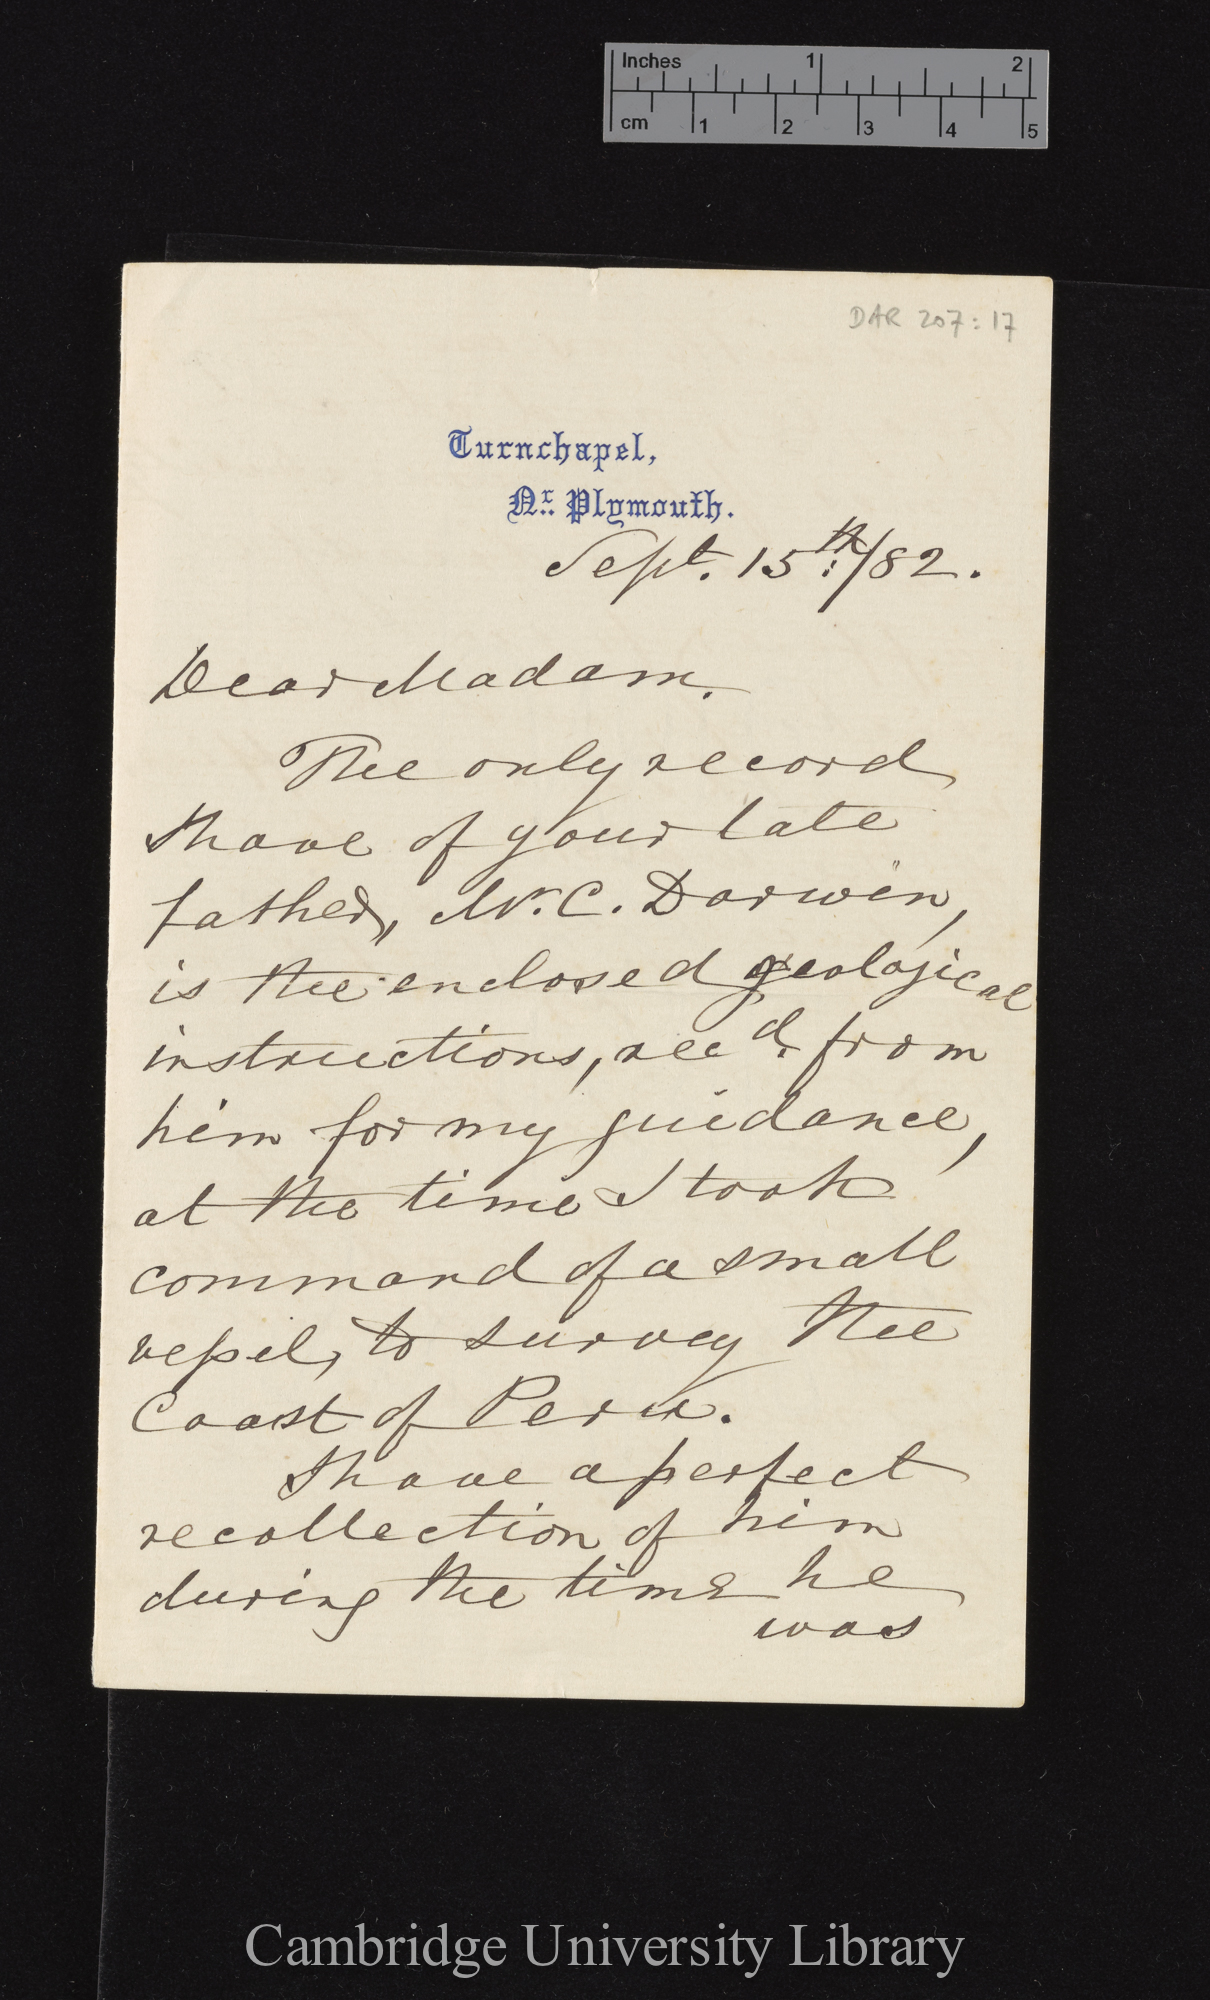 Inches 1 2
cm 1 2 3 4 5
DAR 207:17
Turnchapel,
Nr. Plymouth.
Sept. 15th/82.
Dear Madam.
The only record
I have of your late
father, Mr. C. Darwin,
is the enclosed geological
instructions, recd. from
him for my guidance,
at the time I took
command of a small
vessel, to survey the
Coast of Peru.
I have a perfect
recollection of him
during the time he
was
Cambridge University Library